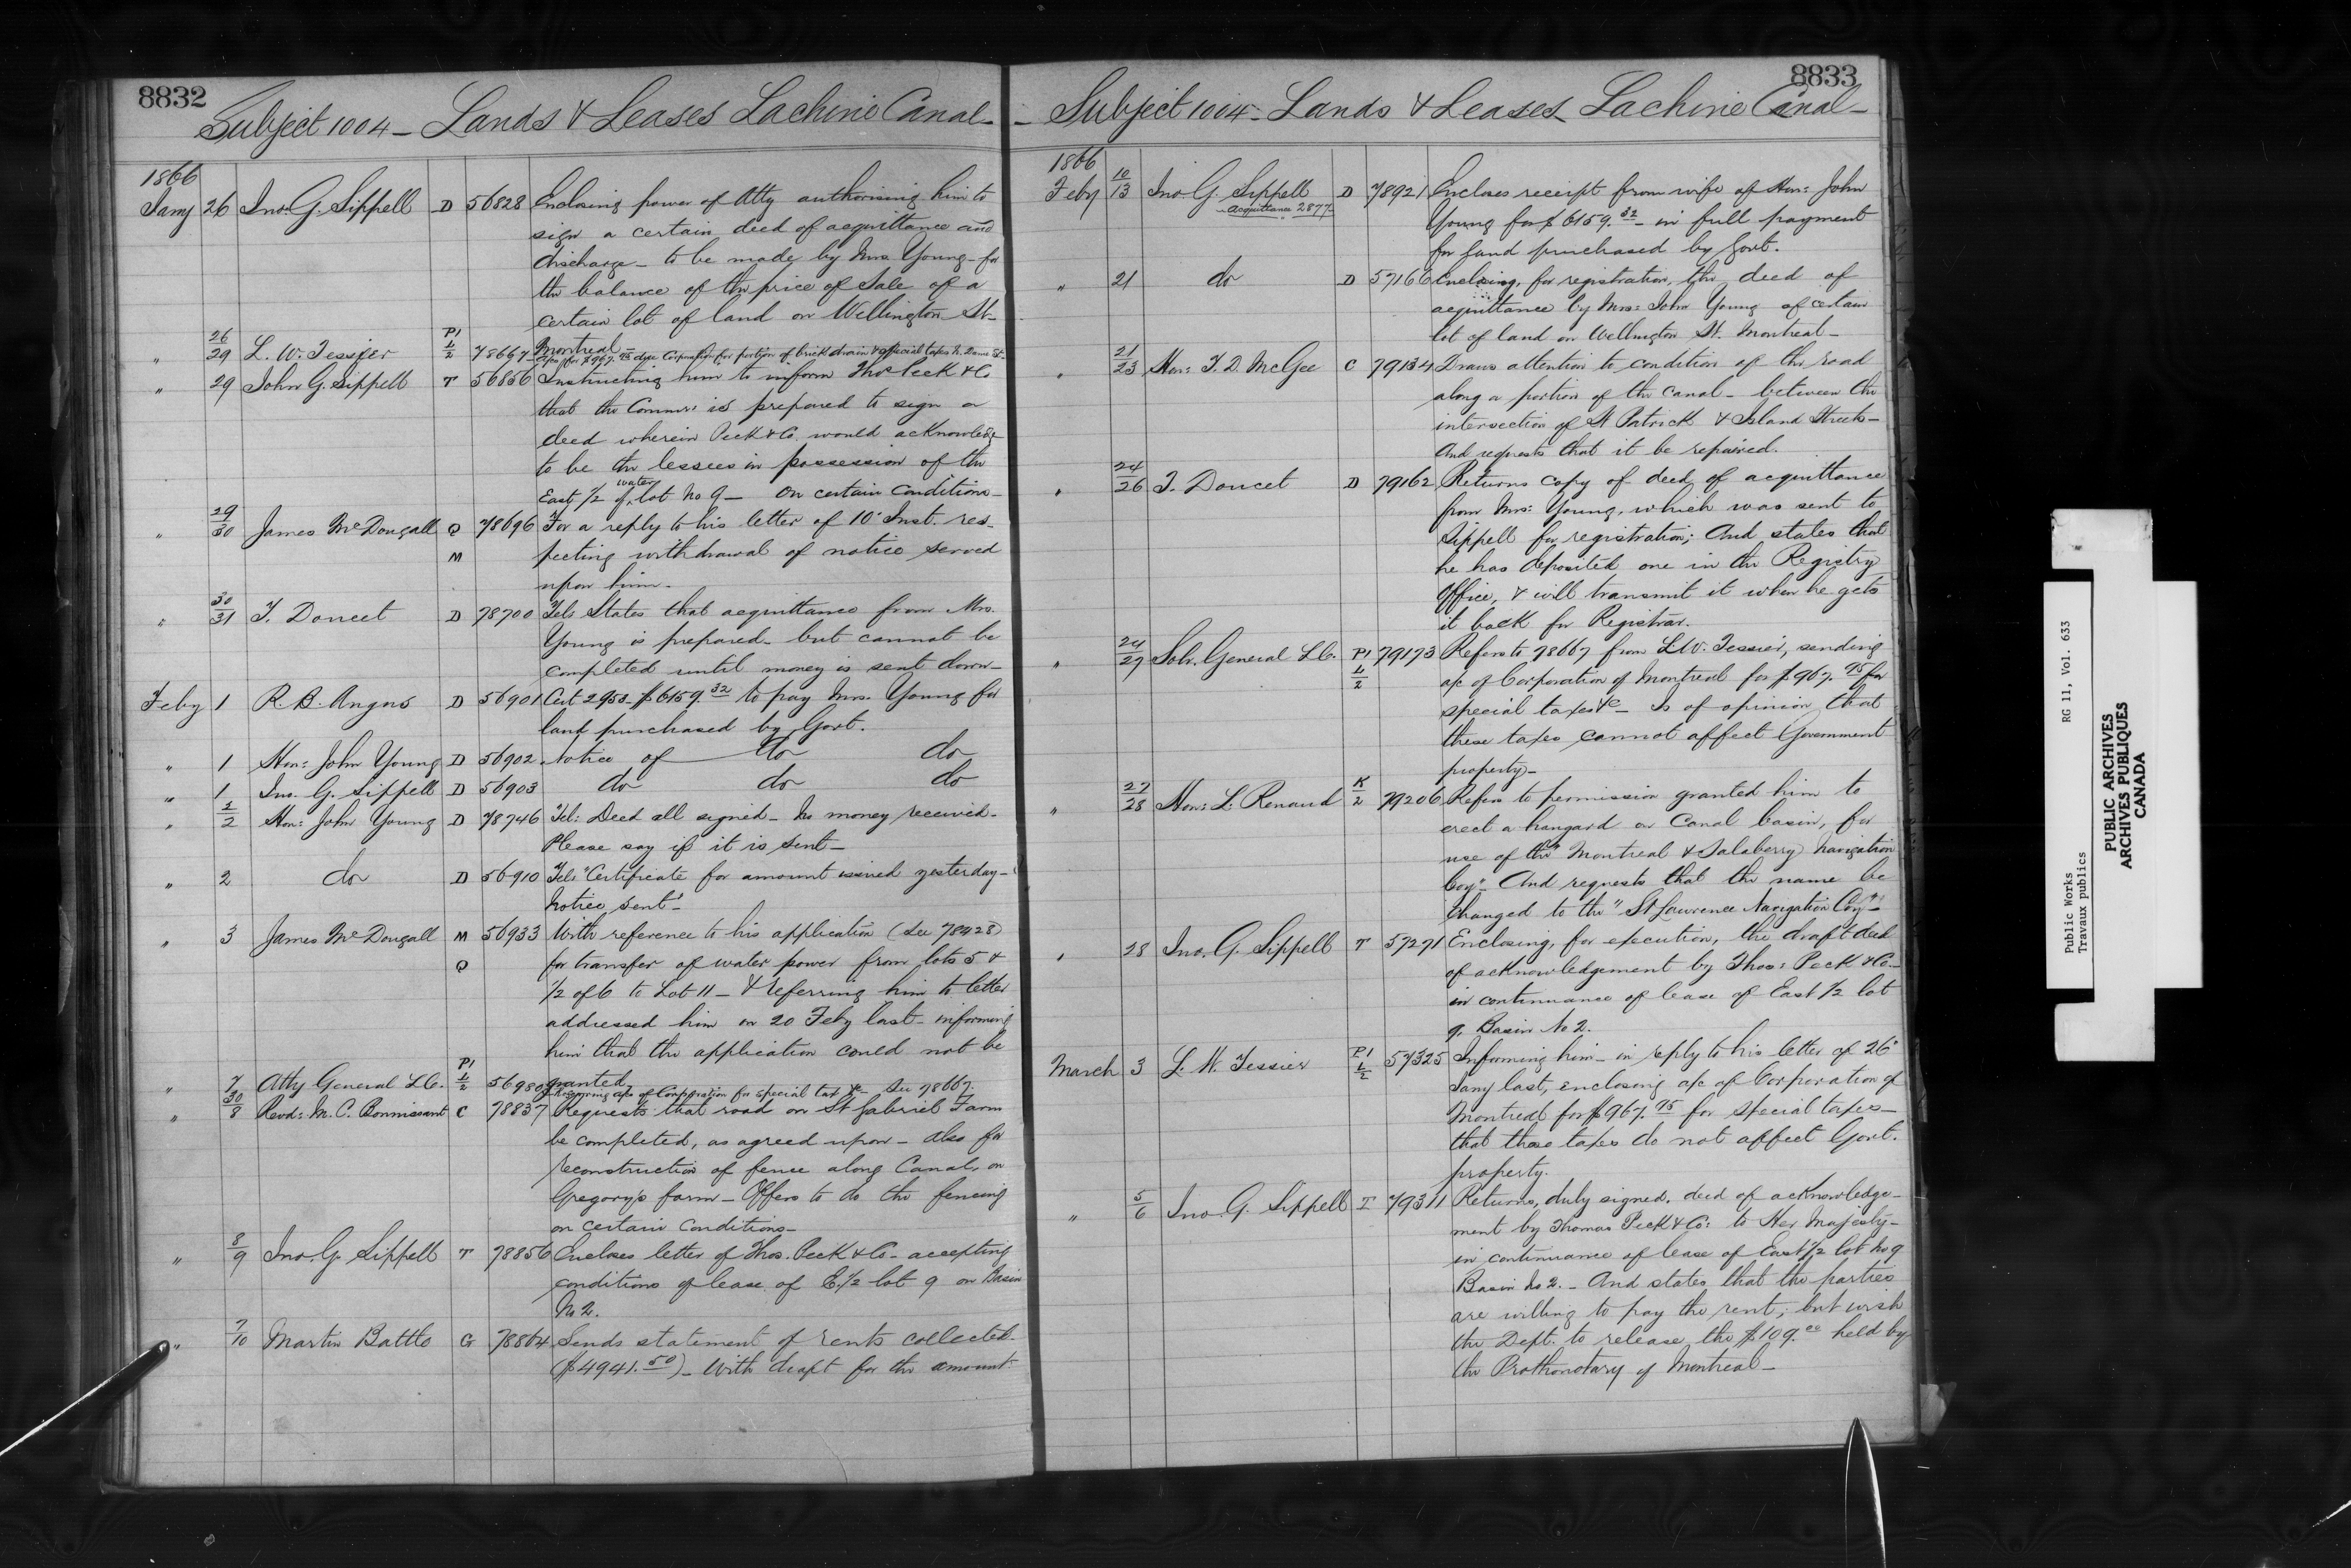 8832
Subject 1004 - Lands & Leases Lachine Canal -
1866
Jany 26 Jno. G. Sippell D 56828 Enclosing power of Atty authorising him to
sign a certain deed of acquittance and
discharge - to be made by Mrs. Young - for
the balance of the price of Sale of a
certain lot of land on Wellington St -
Montreal -
" 26/29 L. W. Tessier P1 1/2 78667 for $967.75 due Corporation for portion of brick drain & special taxes N. Dame St -
" 29 John G. Sippell T 56856 Instructing him to inform Thos. Peck & Co
that the Commr. is prepared to sign a
deed wherein Peck & Co. would acknowledge
to be the lessees in possession of the
East 1/2 of water lot No 9 - On certain conditions -
" 29/30 James McDougall Q M 78696 For a reply to his letter of 10' Inst. res-
pecting withdrawal of notice served
upon him.
" 30/31 T. Doucet D 78700 Tel: States that acquittance from Mrs.
Young is prepared - but cannot be
completed until money is sent down -
Feby 1 R. B. Angus D 56901 Cert 2953 - $6159.32 to pay Mrs. Young for
land purchased by Govt.
" 1 Hon: John Young D 56902 Notice of do do
" 1 Jno. G. Sippell D 56903 do do do
" 1/2 Hon: John Young D 78746 Tel: Deed all signed - No money received -
Please say if it is sent -
" 2 do D 56910 Tel: "Certificate for amount issued yesterday -
Notice sent" -
" 3 James McDougall M Q 56933 With reference to his application (See 78428)
for transfer of water power from lots 5 &
1/2 of 6 to Lot 11 - & referring him to letter
addressed him on 20 Feby last - informing
him that the application could not be
granted
" 7 Atty General L.C. P1 1/2 56980 a/c of Corporation for special tax &c - See 78667.
" 30/8 Revd: M. C. Bonnissant C 78837 Requests that road on St Gabriel Farm
be completed, as agreed upon - also for
reconstruction of fence along Canal, on
Gregory's farm - Offers to do the fencing
on certain Conditions -
" 8/9 Jno. G. Sippell T 78856 Encloses letter of Thos. Peck & Co - accepting
conditions of lease of E. 1/2 lot 9 on Basin
No 2.
" 7/10 Martin Battle G 78864 Sends statement of rents collected -
($4941.50) - With draft for the amount -
8833
- Subject 1004 - Lands & Leases - Lachine Canal -
1866
Feby 10/13 Jno. G. Sippell D 78921 Encloses receipt from wife of Hon: John
Acquittance 2877
Young for $6159.32 - in full payment
for land purchased by Govt.
" 21 do D 57166 Enclosing, for registration, the deed of
acquittance by Mrs: John Young of certain
lot of land on Wellington St. Montreal -
" 21/23 Hon: T. D. McGee C 79134 Draws attention to condition of the road
along a portion of the canal - between the
intersection of St Patrick & Island Streets -
And requests that it be repaired.
" 24/26 T. Doucet D 79162 Returns copy of deed of acquittance
from Mrs: Young, which was sent to
Sippell for registration; And states that
he has deposited one in the Registry
Office, & will transmit it when he gets
it back for Registrar.
" 24/27 Solr. General L.C. P1 1/2 79173 Refers to 78667 from L. W. Tessier, sending
a/c of Corporation of Montreal for $967.75 for
special taxes &c - Is of opinion that
these taxes cannot affect Government
property -
" 27/28 Hon: L. Renaud K/2 79206 Refers to permission granted him to
erect a hangard on Canal basin, for
use of the "Montreal & Salaberry Navigation
Coy" - And requests that the name be
changed to the "St Lawrence Navigation Coy" -
" 28 Jno. G. Sippell T 57271 Enclosing, for execution, the draft deed
of acknowledgement by Thos: Peck & Co -
in continuance of lease of East 1/2 lot
9, Basin No 2.
March 3 L. W. Tessier P1 1/2 57325 Informing him - in reply to his letter of 26'
Jany last, enclosing a/c of Corporation of
Montreal for $967.75 for special taxes -
that these taxes do not affect Govt.
property.
" 5/6 Jno. G. Sippell T 79311 Returns, duly signed, deed of acknowledge-
ment by Thomas Peck & Co: to Her Majesty -
in continuance of lease of East 1/2 lot No 9
Basin No 2. - And states that the parties
are willing to pay the rent; but wish
the Dept. to release the $109.00 held by
the Prothonotary of Montreal -
Public Works RG 11, Vol. 633
Travaux publics
PUBLIC ARCHIVES
ARCHIVES PUBLIQUES
CANADA